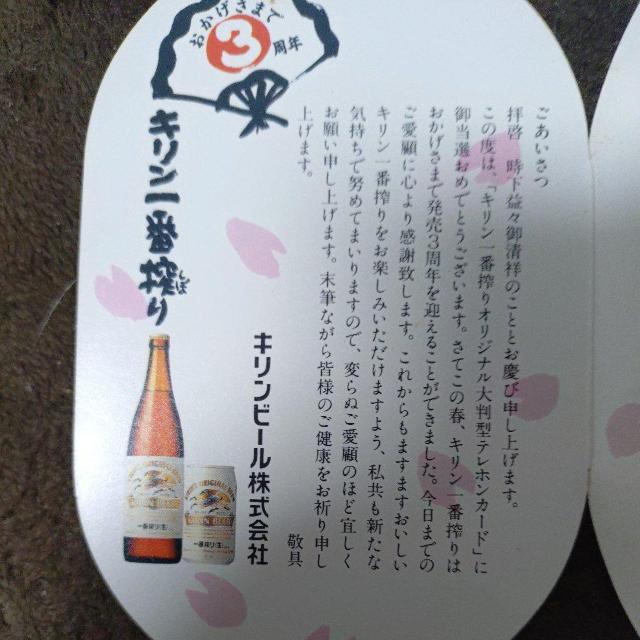 ごあいさつ
拝啓 時下益々御清祥のこととお慶び申し上げます。
この度は、「キリン一番搾りオリジナル大判型テレホンカード」に
御当選おめでとうございます。さてこの春、キリン一番搾りは
おかげさまで発売3周年を迎えることができました。今日までの
ご愛顧に心より感謝致します。これからもますますおいしい
キリン一番搾りをお楽しみいただけますよう、私共も新たな
気持ちで努めてまいりますので、変らぬご愛顧のほど宜しく
お願い申し上げます。末筆ながら皆様のご健康をお祈り申し
上げます。
敬具
キリンビール株式会社
おかげさまで
3
周年
キリン一番搾り
しぼ
一番搾り生
一番搾り生